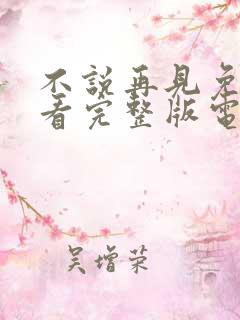 不說再見免
看完整版電
吳增荣